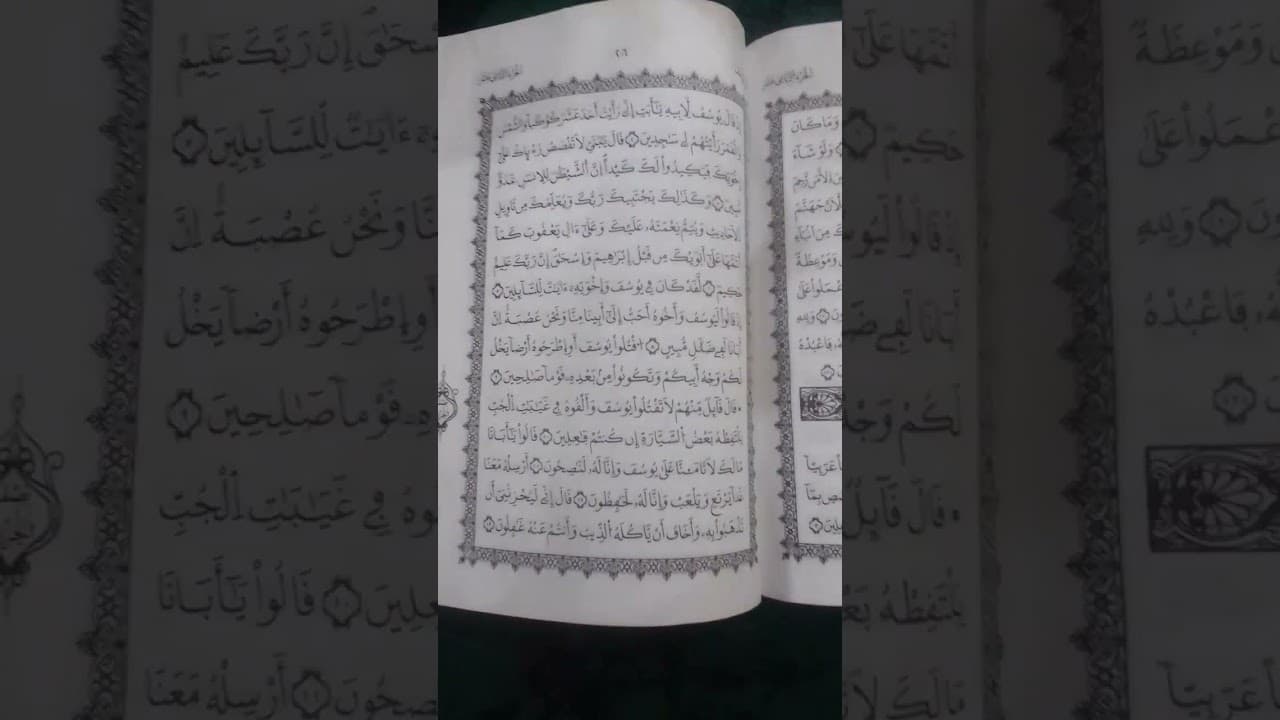 وَمَا كَانَ
وَلَوْ شَآءَ
كَ مِنَ اَنۢبَآءِ
وَمَوْعِظَةٌ
عْمَلُواْ عَلَىٰ
وَلِلهِ
فَاعْبُدْهُ
٢٠٦
إِذْ قَالَ يُوسُفُ لِأَبِيهِ يَٰٓأَبَتِ إِنِّے رَأَيْتُ أَحَدَ عَشَرَ كَوْكَباً وَالشَّمْسَ
وَالْقَمَرَ رَأَيْتُهُمْ لِے سَٰجِدِينَ ٤ قَالَ يَٰبُنَيِّ لَا تَقْصُصْ رُءْيَاكَ عَلَىٰٓ
إِخْوَتِكَ فَيَكِيدُواْ لَكَ كَيْداًۖ اِنَّ اَلشَّيْطَٰنَ لِلِانسَٰنِ عَدُوٌّ
مُّبِينٌ ٥ وَكَذَٰلِكَ يَجْتَبِيكَ رَبُّكَ وَيُعَلِّمُكَ مِن تَاوِيلِ
اِلْأَحَادِيثِ وَيُتِمُّ نِعْمَتَهُۥ عَلَيْكَ وَعَلَىٰٓ ءَالِ يَعْقُوبَ كَمَآ
أَتَمَّهَا عَلَىٰٓ أَبَوَيْكَ مِن قَبْلُ إِبْرَٰهِيمَ وَإِسْحَٰقَۖ إِنَّ رَبَّكَ عَلِيمٌ
حَكِيمٌ ٦ لَّقَدْ كَانَ فِے يُوسُفَ وَإِخْوَتِهِۦٓ ءَايَٰتٌ لِّلسَّآئِلِينَ ٧
إِذْ قَالُواْ لَيُوسُفُ وَأَخُوهُ أَحَبُّ إِلَىٰٓ أَبِينَا مِنَّا وَنَحْنُ عُصْبَةٌۖ اِنَّ
أَبَانَا لَفِے ضَلَٰلٍ مُّبِينٍ ٨ اُ۟قْتُلُواْ يُوسُفَ أَوِ اِطْرَحُوهُ أَرْضاً يَخْلُ
لَكُمْ وَجْهُ أَبِيكُمْ وَتَكُونُواْ مِنۢ بَعْدِهِۦ قَوْماً صَٰلِحِينَ ٩
قَالَ قَآئِلٌ مِّنْهُمْ لَا تَقْتُلُواْ يُوسُفَ وَأَلْقُوهُ فِے غَيَٰبَٰتِ اِلْجُبِّ
يَلْتَقِطْهُ بَعْضُ اُلسَّيَّارَةِ إِن كُنتُمْ فَٰعِلِينَ ١٠ قَالُواْ يَٰٓأَبَانَا
مَا لَكَ لَا تَامَ۬نَّا عَلَىٰ يُوسُفَ وَإِنَّا لَهُۥ لَنَٰصِحُونَ ١١ أَرْسِلْهُ مَعَنَا
غَداً يَرْتَعِ وَيَلْعَبْ وَإِنَّا لَهُۥ لَحَٰفِظُونَ ١٢ قَالَ إِنِّے لَيُحْزِنُنِيَ أَن
تَذْهَبُواْ بِهِۦ وَأَخَافُ أَنْ يَّاكُلَهُ اُلذِّيبُ وَأَنتُمْ عَنْهُ غَٰفِلُونَ ١٣